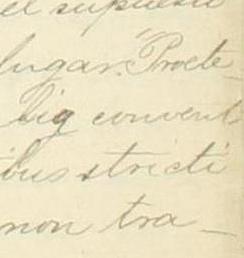 el supuesto
lugar. "Procte
big convent
ibus stricti
non tra-